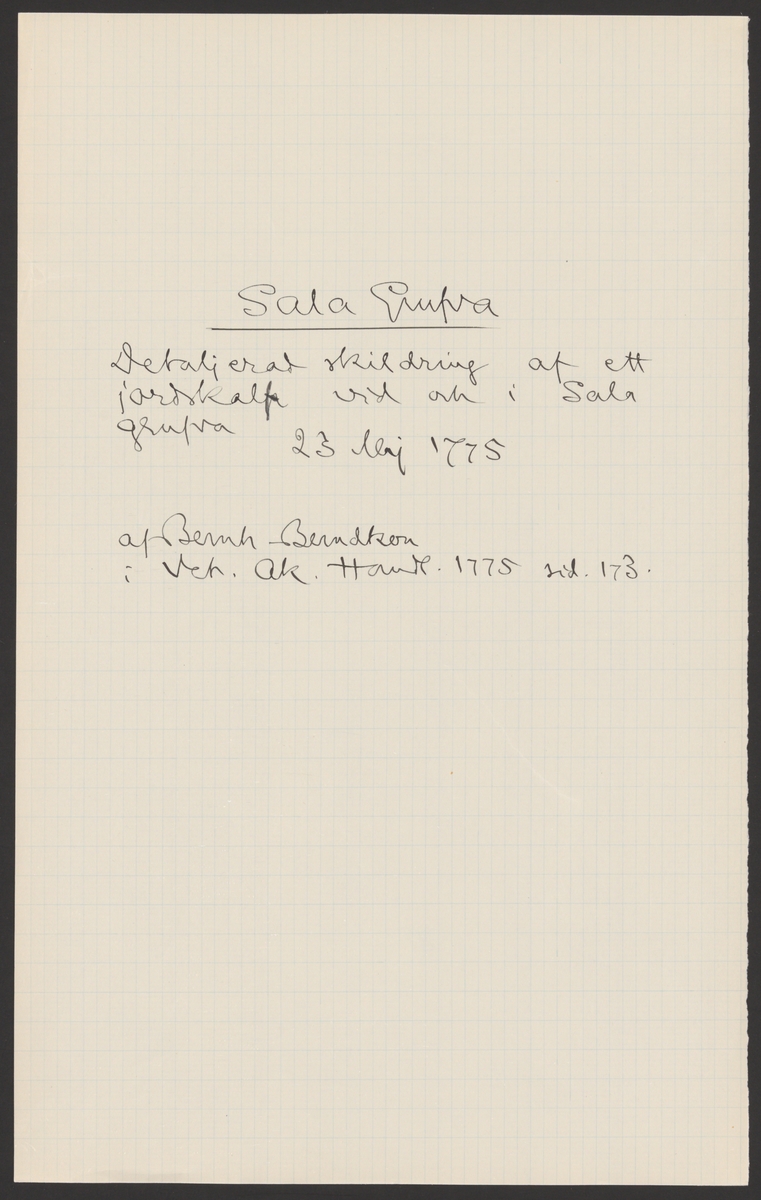 Sala Grufva
Detaljerad skildring af ett
jordskalf vid och i Sala
grufva 23 Maj 1775
af Bernh Berndtson
i Vet. Ak. Handl. 1775 sid. 173.